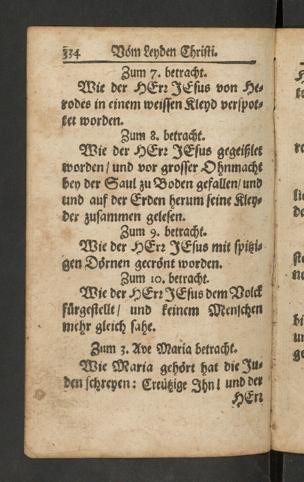 334 Vom Leyden Christi.
Zum 7. betracht.
Wie der HErr JEsus von He-
rodes in einem weissen Kleyd verspot-
tet worden.
Zum 8. betracht.
Wie der HErr JEsus gegeißlet
worden / und vor grosser Ohnmacht
bey der Saul zu Boden gefallen / und
und auf der Erden herum seine Kley-
der zusammen gelesen.
Zum 9. betracht.
Wie der HErr JEsus mit spitzi-
gen Dörnen gecrönt worden.
Zum 10. betracht.
Wie der HErr JEsus dem Volck
fürgestellt / und keinem Menschen
mehr gleich sahe.
Zum 3. Ave Maria betracht.
Wie Maria gehört hat die Ju-
den schreyen: Creutzige Jhn! und der
HErr